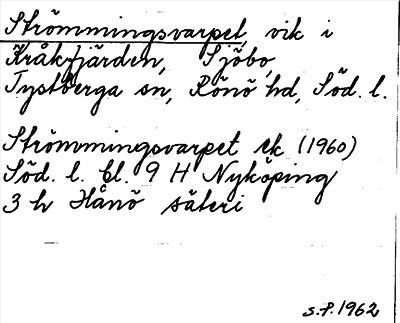 Strömmingsvarpet, vik i
Kråkfjärden, Sjöbo,
Tystberga sn, Rönö hd, Söd. l.
Strömmingsvarpet ek (1960)
Söd. l. bl. 9 H Nyköping
3 h Hånö säteri
S.P. 1962